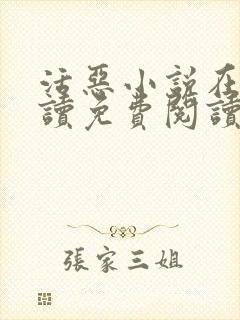 活惡小說在
讀免費閱讀
張家三姐